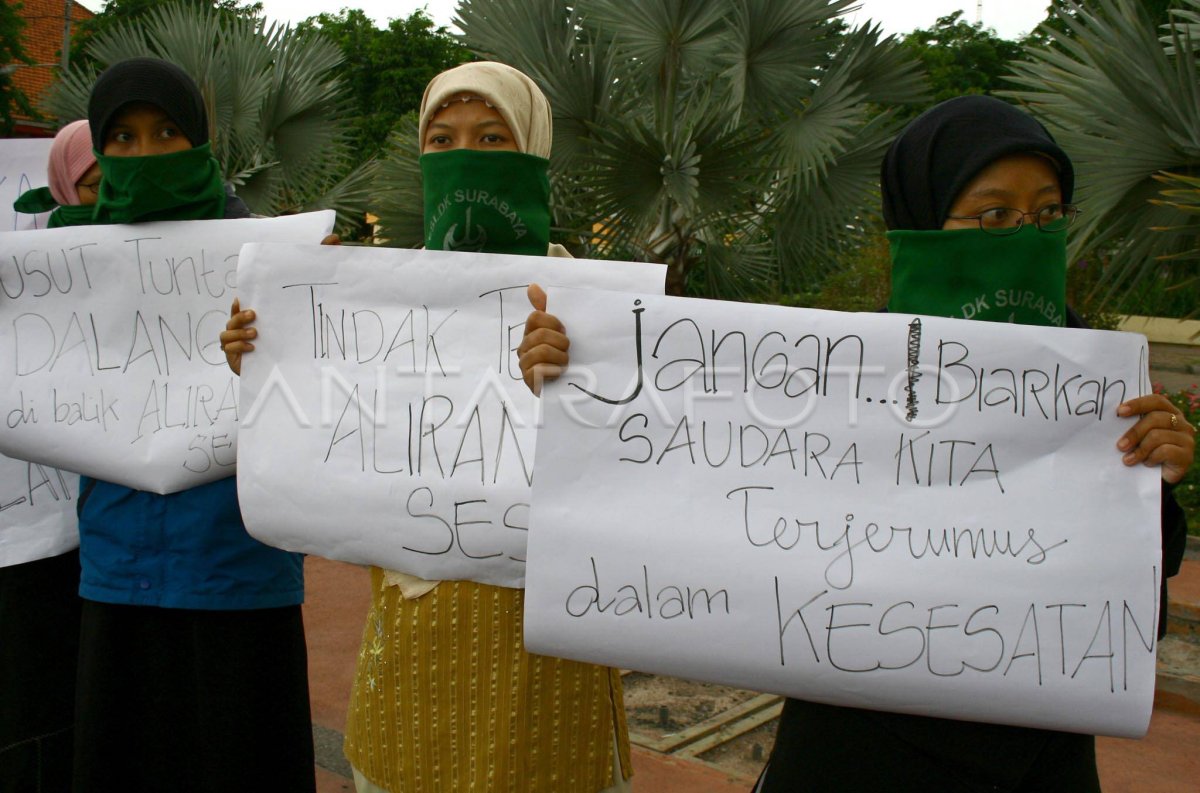 USUT Tunta
DALANG
di balik ALIRA
SE
TINDAK Te
ALIRAN
SES
Jangan...! Biarkan
SAUDARA KITA
Terjerumus
dalam KESESATAN
LDK SURABAYA
LDK SURABAYA
ANTARAFOTO